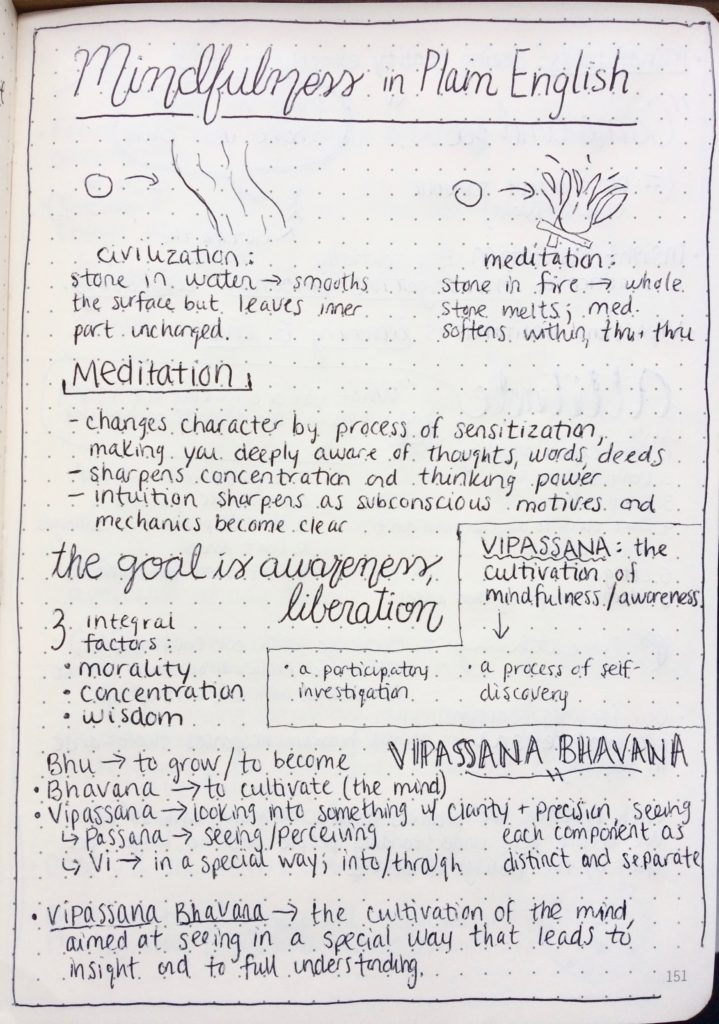 Mindfulness in Plain English
civilization:
stone in water → smooths
the surface but leaves inner
part unchanged.
meditation:
stone in fire → whole
stone melts; med.
softens within, thru + thru
Meditation
- changes character by process of sensitization,
making you deeply aware of thoughts, words, deeds
- sharpens concentration and thinking power
- intuition sharpens as subconscious motives and
mechanics become clear
the goal is awareness,
liberation
VIPASSANA: the
cultivation of
mindfulness/awareness
↓
• a participatory
investigation
• a process of self-
discovery
3 integral
factors:
• morality
• concentration
• wisdom
VIPASSANA BHAVANA
Bhu → to grow/to become
• Bhavana → to cultivate (the mind)
• Vipassana → looking into something w/ clarity + precision, seeing
each component as
distinct and separate
↳ Passana → seeing/perceiving
↳ Vi → in a special way; into/through
• Vipassana Bhavana → the cultivation of the mind,
aimed at seeing in a special way that leads to
insight and to full understanding.
151